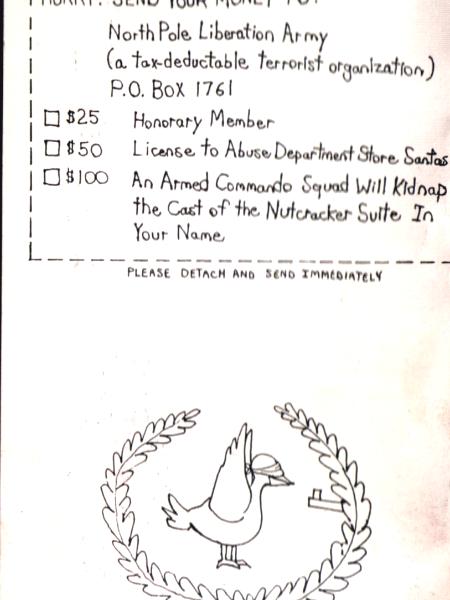 HURRY! SEND YOUR MONEY TO:
North Pole Liberation Army
(a tax-deductable terrorist organization)
P.O. Box 1761
$25 Honorary Member
$50 License to Abuse Department Store Santas
$100 An Armed Commando Squad Will Kidnap
the Cast of the Nutcracker Suite In
Your Name
PLEASE DETACH AND SEND IMMEDIATELY